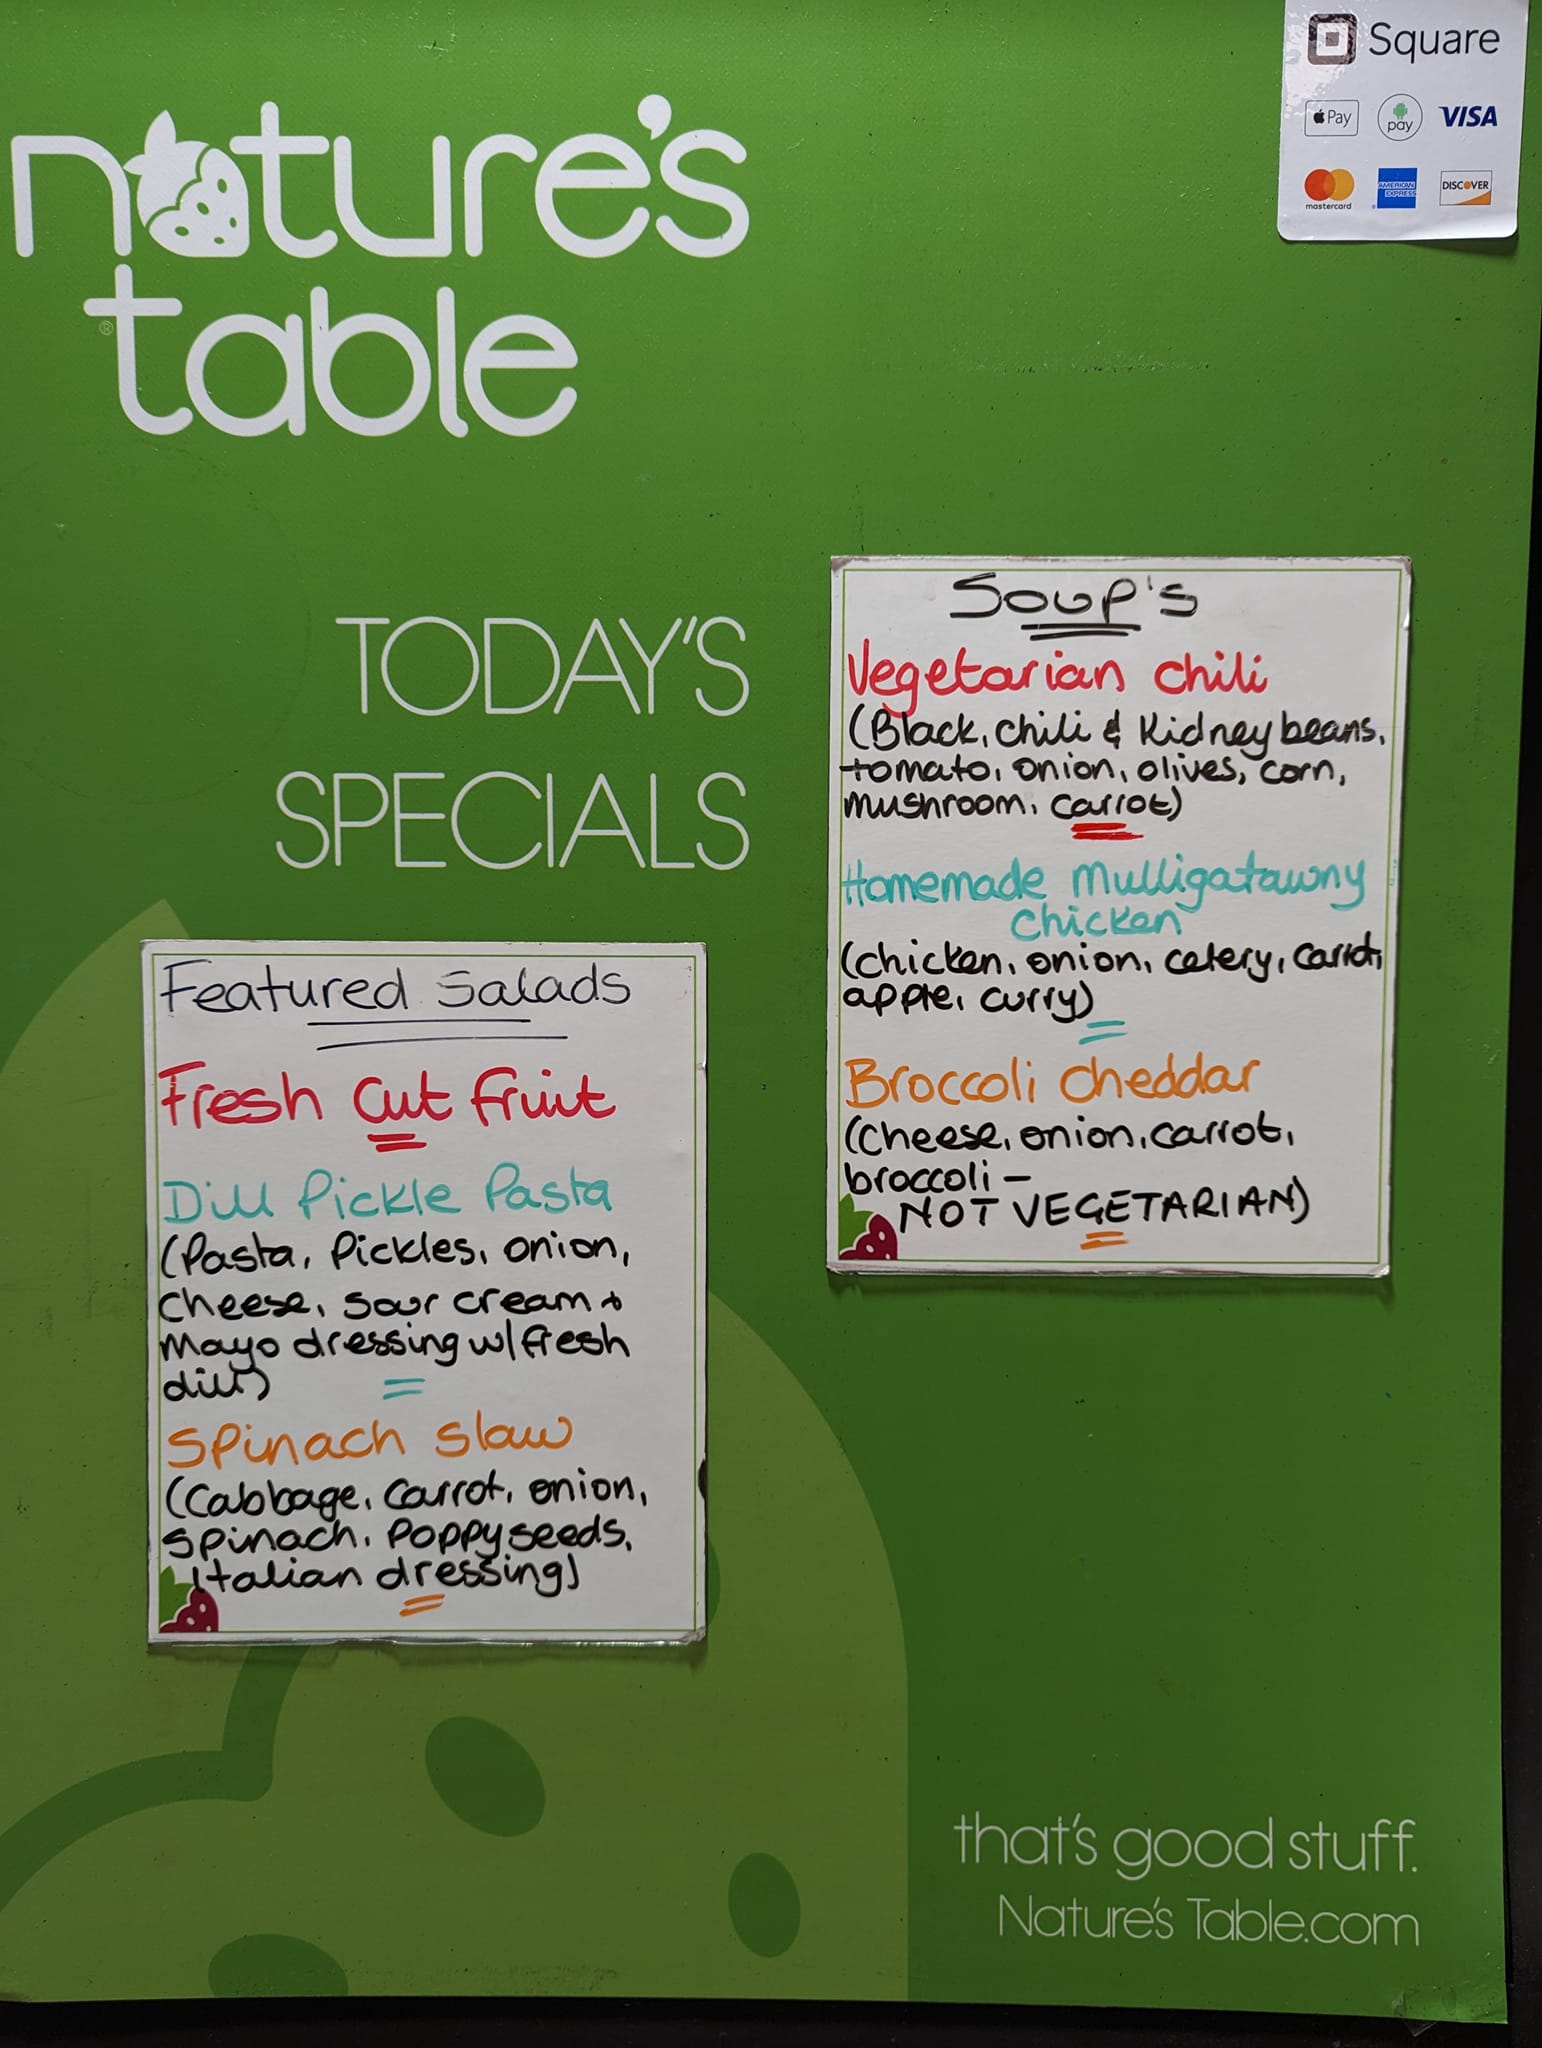 Square
Pay
pay
VISA
mastercard
AMERICAN EXPRESS
DISCOVER
nature's
table
®
TODAY'S
SPECIALS
Soup's
Vegetarian chili
(Black, chili & Kidney beans,
tomato, onion, olives, corn,
mushroom, carrot)
Homemade Mulligatawny
chicken
(chicken, onion, celery, carrot,
apple, curry)
Broccoli cheddar
(cheese, onion, carrot,
broccoli -
NOT VEGETARIAN)
Featured Salads
Fresh cut fruit
Dill Pickle Pasta
(Pasta, Pickles, onion,
cheese, sour cream +
Mayo dressing w/fresh
dill)
Spinach slaw
(Cabbage, carrot, onion,
spinach, Poppyseeds,
Italian dressing)
that's good stuff.
Nature's Table.com